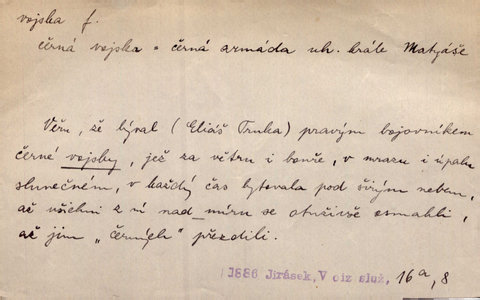 vojska f.
černá vojska = černá armáda uh. krále Matyáše
Věru, že býval (Eliáš Trnka) pravým bojovníkem
černé vojsky, jež za větru i bouře, v mrazu i úpalu
slunečném, v každý čas bytovala pod širým nebem,
až všichni z ní nad míru se otuživše osmahli,
až jim „černých" přezdili.
1886 Jirásek, V ciz služ, 16a, 8